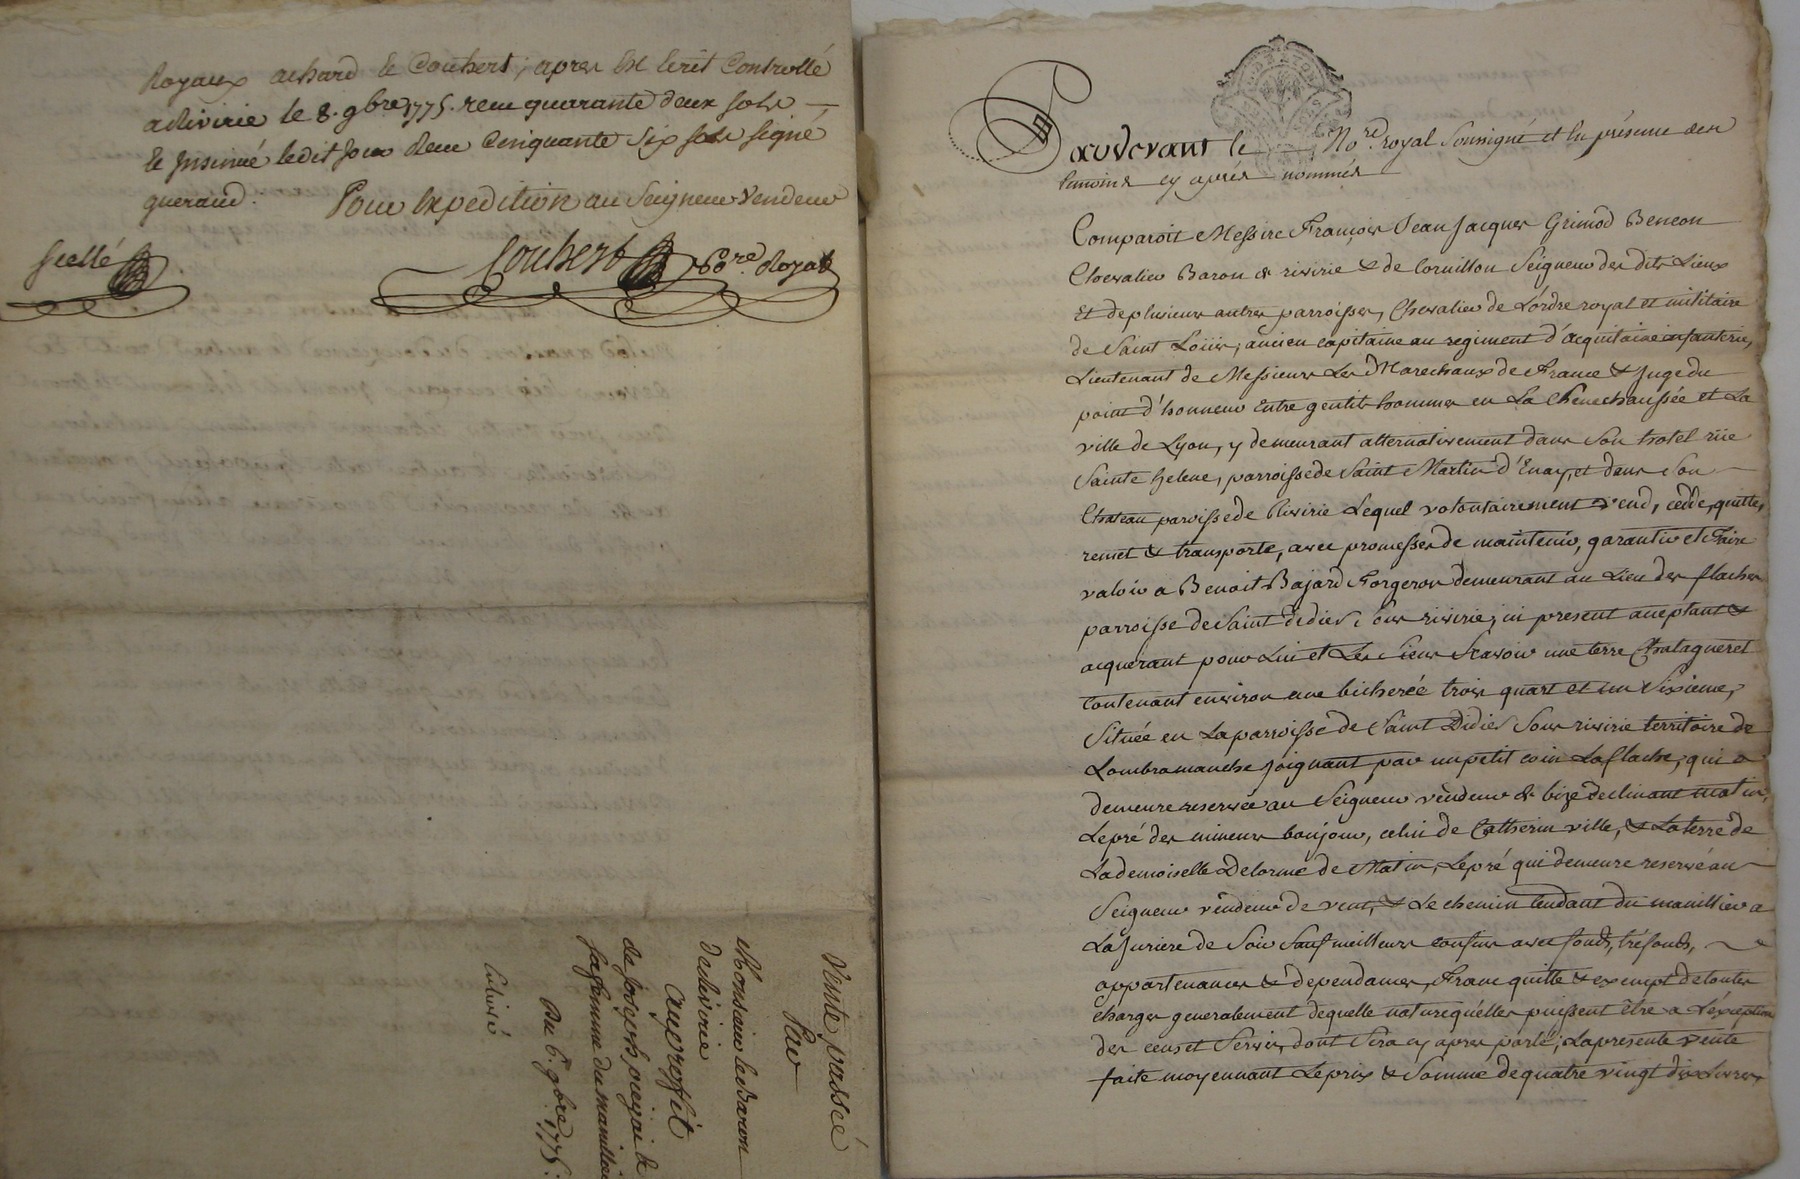 Royaux achard & Couhert, apres Est Ecrit Controllé
a Rivirie le 8. 9bre 1775. recu quarante deux sols
& Insinué ledit jour Recu Cinquante Six sols signé
gueraud.
Pour Expedition au Seigneur Vendeur
Scellé
Couhert Nore Royal
Vente passée
Par
Monsieur le Baron
De Rivirie
au proffit
de joseph
sa femme du manillier
Du 6e 9bre 1775.
Pardevant le Nore royal Soussigné et En présence des
temoins cy aprés nommés
Comparoit Messire François Jean Jacques Grimod Beneon
Chevalier Baron de rivirie & de Cornillon Seigneur des dits Lieux
Et de plusieurs autres parroisses, Chevalier de L'ordre royal et militaire
de Saint Loüis, ancien capitaine au regiment d'acquitaine infanterie,
Lieutenant de Messieurs Les Marechaux de France & Juge du
point d'honneur Entre gentils hommes en La Chenechaussée et La
ville de Lyon, y demeurant alternativement dans Son hotel rüe
Sainte helene, parroisse de Saint Martin d'Enay, et dans Son
Chateau parroisse de Rivirie Lequel volontairement vend, cedde, quitte,
remet & transporte, avec promesses de maintenir, garantir et Faire
valoir a Benoit Bajard Forgeron demeurant au Lieu des flaches
parroisse de Saint Didier Sous rivirie, ici present acceptant &
acquerant pour Lui et Les Siens Scavoir une terre Chatagneret
Contenant environ une bicherée trois quart et un Sixieme,
Située en La parroisse de Saint Didier Sous rivirie territoire de
Lombramanche joignant par un petit coin La flache, qui
demeure reservée au Seigneur vendeur de bize declinant matin,
Le pré des mineurs boujour, celui de Catherin ville, & La terre de
La demoiselle Delorme de Matin, Le pré qui demeure reservé au
Seigneur vendeur de vent, & Le chemin tendant du manillier a
La Juriere de Soir Sauf meilleurs confins avec fonds, tréfonds,
appartenances & dependances, Franc quitte & exempt de toutes
charges generalement de quelle nature qu'elles puissent être a L'exception
des cens et Servis, dont Sera cy apres parlé; La presente vente
faite moyennant Le prix & Somme de quatre vingt dix Livres